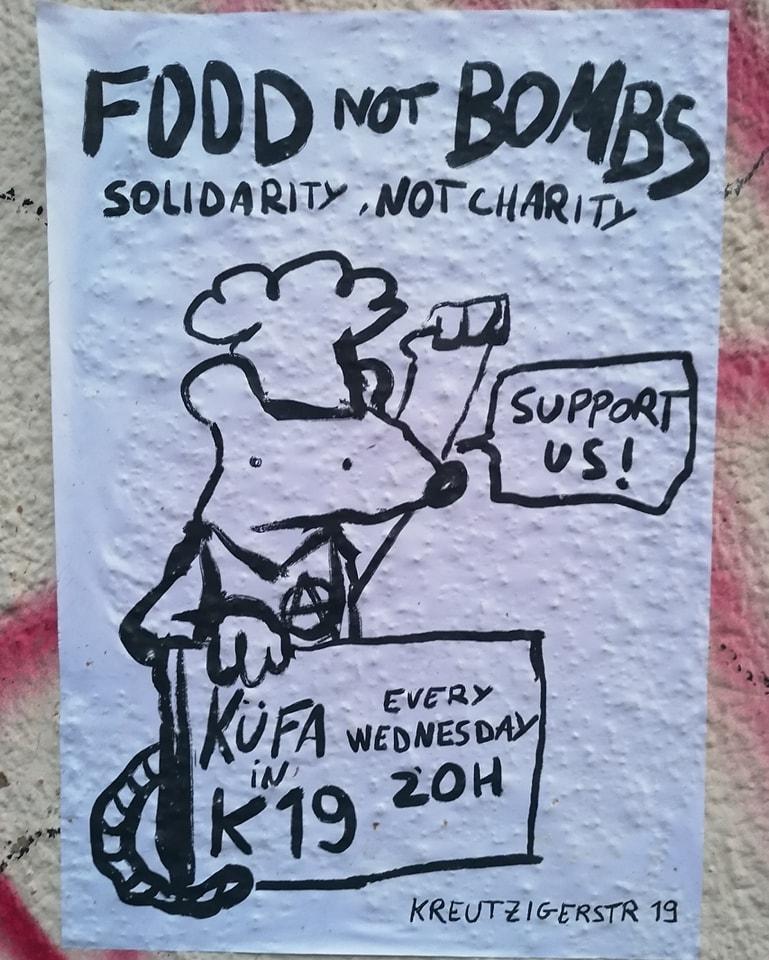 FOOD NOT BOMBS
SOLIDARITY, NOT CHARITY
SUPPORT
US!
A
KÜFA
in
K19
EVERY
WEDNESDAY
20H
KREUTZIGERSTR 19